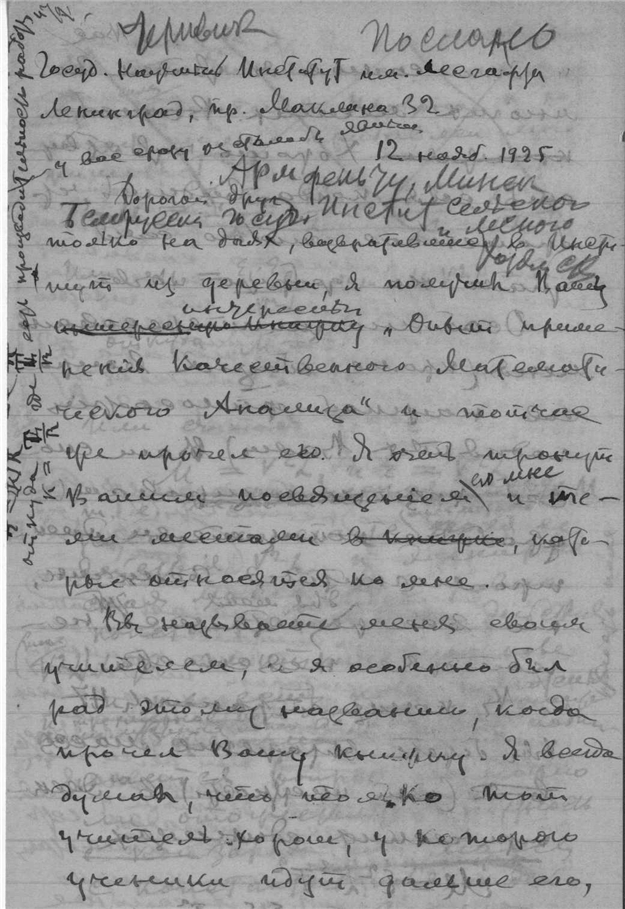 Черновик Послано
Госуд. Научный Институт им. Лесгафта
Ленинград, пр. Маклина 32
12 ноябр. 1925
Минск
Дорогой друг
Белорусск. Госуд. Инстит. сельского
и лесного
только на днях, возвратившись в Инсти-
тут из деревни, я получил Вашу
интересный
интересную книгу „Опыт приме-
нения Качественного Математи-
ческого Анализа“ и тотчас
же прочел его. Я очень тронут
его мне
Вашим посвящением и те-
ми местами в книге, кото-
рые относятся ко мне.
Вы называете меня своим
учителем, и я особенно был
рад этому названию, когда
прочел Вашу книжку. Я всегда
думал, что только тот
учитель хорош, у которого
ученики идут дальше его,
откуда K = где есть производительность работы